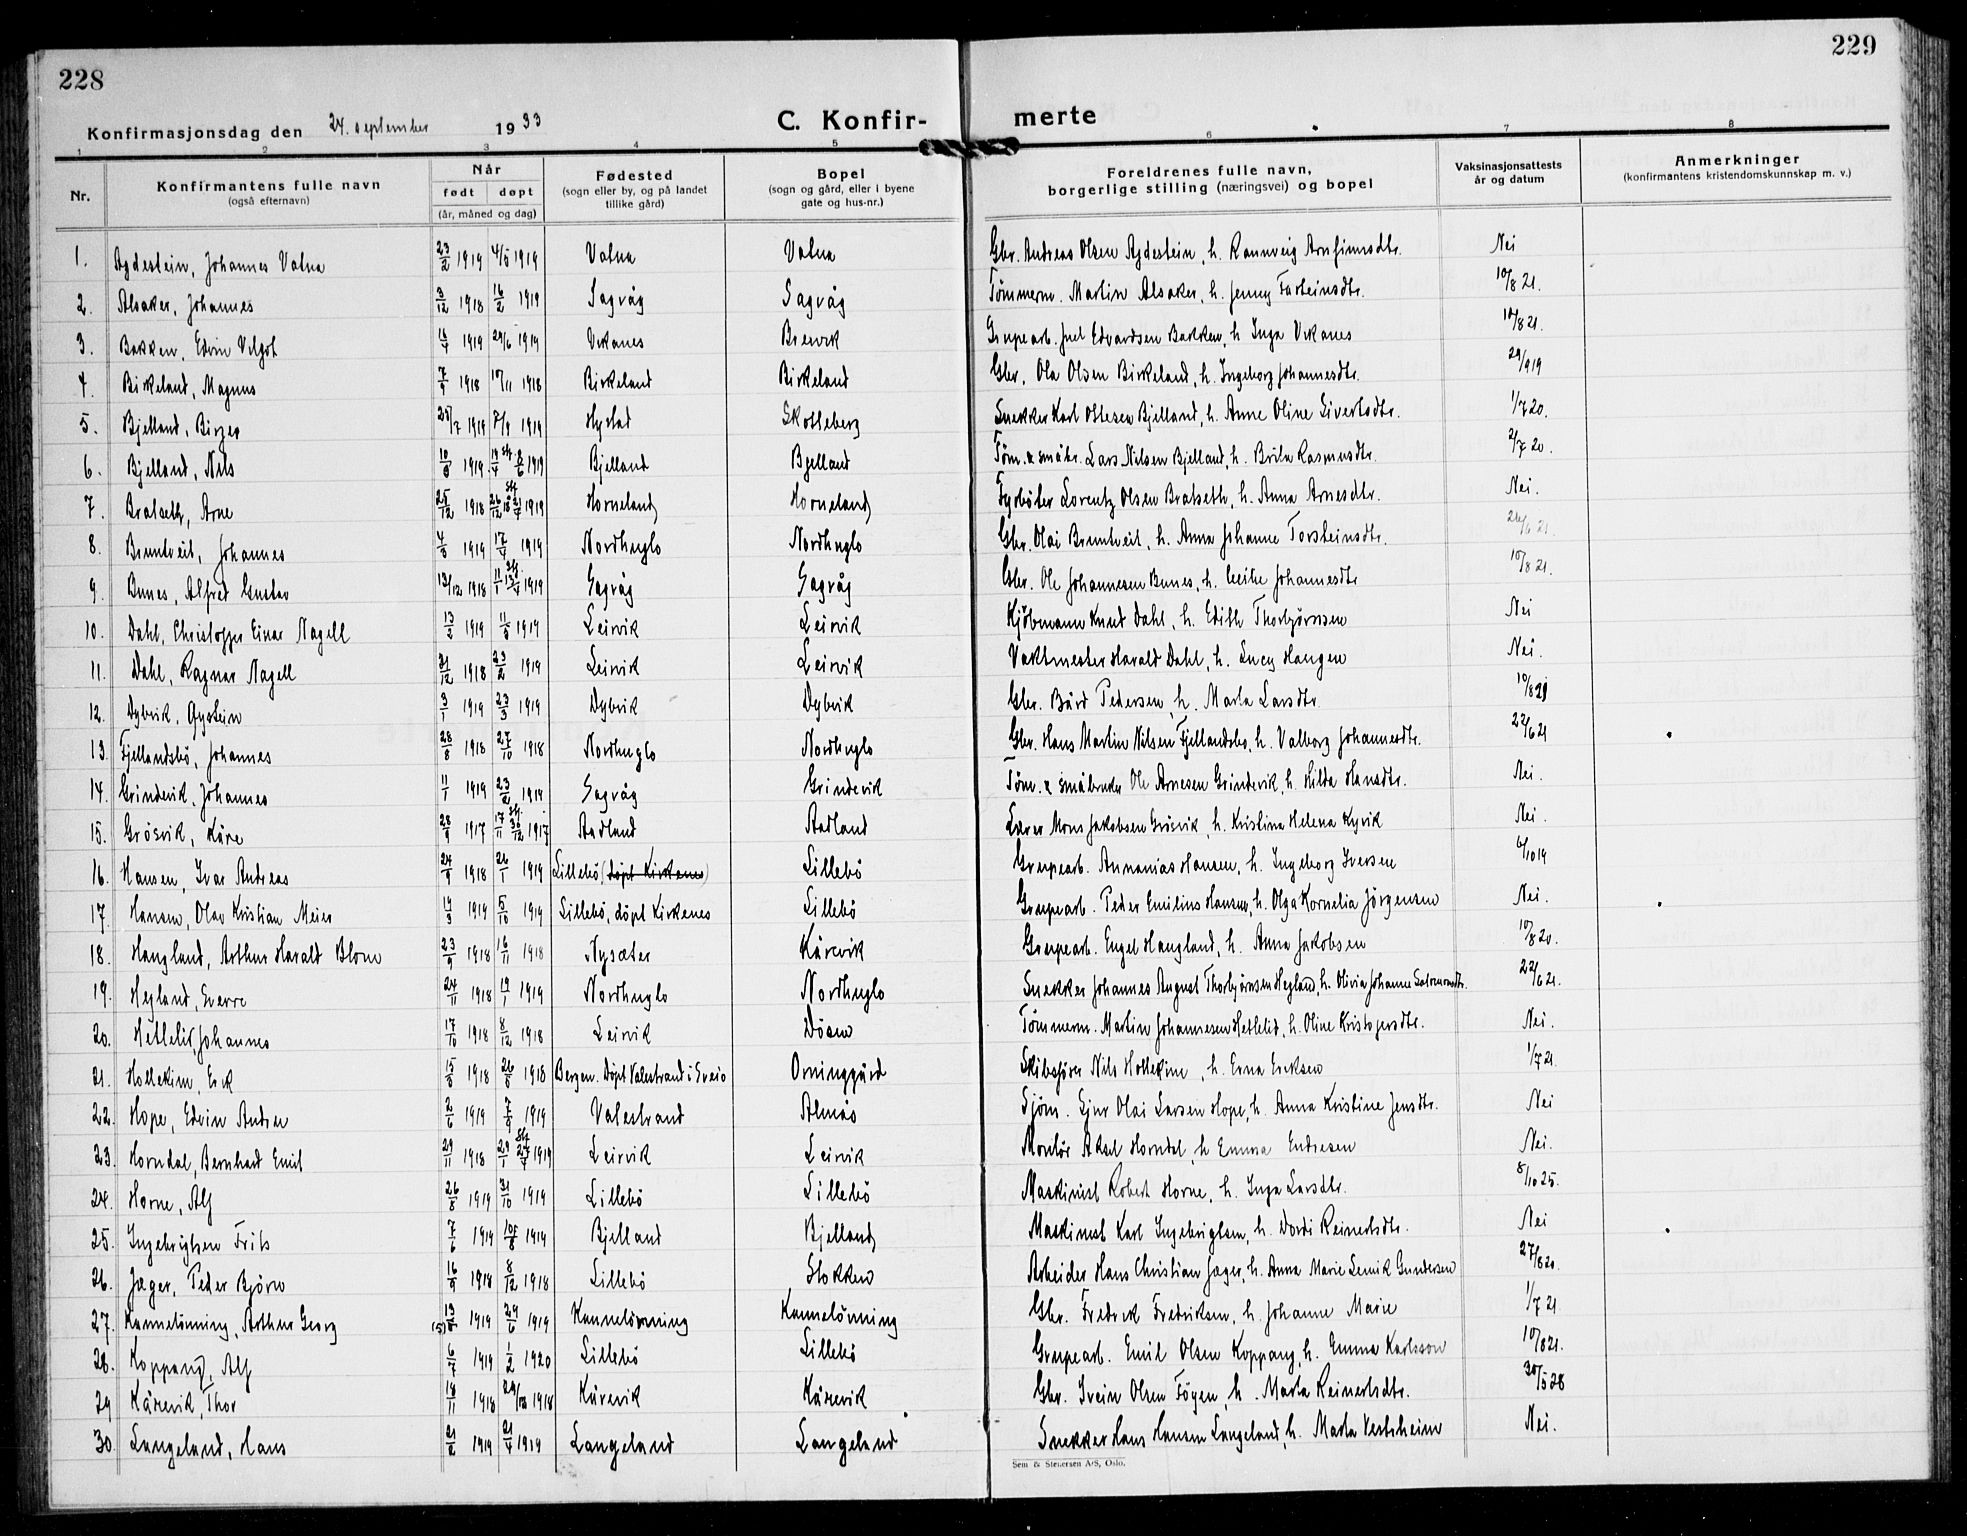 228
229
Konfirmasjonsdag den 24. september 1933
C. Konfir-
merte
1 2 3 4 5 6 7 8
Nr.
Konfirmantens fulle navn
(også efternavn)
Når
født døpt
(år, måned og dag)
Fødested
(sogn eller by, og på landet
tillike gård)
Bopel
(sogn og gård, eller i byene
gate og hus-nr.)
Foreldrenes fulle navn,
borgerlige stilling (næringsvei) og bopel
Vaksinasjonsattests
år og datum
Anmerkninger
(konfirmantens kristendomskunnskap m. v.)
1. Agdestein, Johannes Vatna 23/2 1919 4/5 1919 Vatna Vatna Gbr. Andreas Olsen Agdestein, h. Rannveig Arnfinnsdtr. Nei
2. Alsaker, Johannes 3/12 1918 16/2 1919 Sagvåg Sagvåg Tømmerm. Martin Alsaker, h. Jenny Farteinsdtr. 10/8 21.
3. Bakken, Edvin 1919 29/6 1919 Vikanes Brevik Grupearb. Juel Edvardsen Bakken, h. Inga Vikanes 10/8 21.
4. Birkeland, Magnus 1918 10/11 1918 Birkeland Birkeland Gbr. Ola Olsen Birkeland, h. Ingeborg Johannesdtr. 29/9 19
5. Bjelland, Birger 25/7 1919 7/9 1919 Hystad Skotteberg Snekker Karl Ottesen Bjelland, h. Anne Oline Sivertsdtr. 1/7 20.
6. Bjelland, Nils 1919 1919 Bjelland Bjelland Tøm. & småbr. Lars Nilsen Bjelland, h. Brita Rasmusdtr. 2/7 20.
7. Bratseth, Arne 25/12 1918 26/12 18 1919 Horneland Horneland Fyrbøter Lorentz Olsen Bratseth, h. Anna Arnesdtr. Nei.
8. Bruntveit, Johannes 1919 17/4 1919 Nordhuglo Nordhuglo Gbr. Olai Bruntveit, h. Anna Johanne Torsteinsdtr. 26/6 21
9. Bunes, Alfred Gustav 13/12 1918 1919 Sagvåg Sagvåg Gbr. Ole Johannesen Bunes, h. Cecilie Johannesdtr 10/8 21.
10. Dahl, Christoffer Einar Nagell 13/2 1919 11/5 1919 Leirvik Leirvik Kjøbmann Knut Dahl, h. Edith Thorbjørnsen Nei
11. Dahl, Ragnar Nagell 31/12 1918 23/2 1919 Leirvik Leirvik Vaktmester Harald Dahl, h. Lucy Haugen Nei.
12. Dybvik, Øystein 3/1 1919 23/3 1919 Dybvik Dybvik Gbr. Bård Pedersen, h. Marta Larsdtr. 10/8 21
13. Fjellandsbø, Johannes 28/8 1918 27/10 1918 Nordhuglo Nordhuglo Gbr. Hans Martin Nilsen Fjellandsbø, h. Valborg Johannesdtr. 22/6 21
14. Grindevik, Johannes 11/1 1919 23/2 1919 Sagvåg Grindevik Tøm. & småbruker Ole Arnesen Grindevik, h. Hilda Hansdtr. Nei.
15. Grøsvik, Kåre 28/9 1917 17/11 30/12 1917 Aadland Aadland Lærer Mons Jakobsen Grøsvik, h. Kristina Helena Kyvik Nei.
16. Hansen, Ivar Andreas 24/9 1918 26/1 1919 Lillebø (døpt Kirkenes) Lillebø Grupearb. Annanias Hansen, h. Ingeborg Iversen 6/10 19
17. Hansen, Olav Kristian Meier 1919 5/10 1919 Lillebø, døpt Kirkenes Lillebø Grupearb. Peder Emilius Hansen, h. Olga Kornelia Jørgensen Nei.
18. Haugland, Arthur Harald Blom 23/9 1918 16/11 1918 Nysæter Kårevik Grupearb. Engel Haugland, h. Anna Jakobsen 10/8 20.
19. Hegland, Sverre 24/11 1918 19/1 1919 Nordhuglo Nordhuglo Snekker Johannes August Thorbjørnsen Hegland, h. Olivia Johanne Salomonsdtr. 22/6 21.
20. Hetlelid, Johannes 17/10 1918 8/12 1918 Leirvik Døsen Tømmerm. Martin Johannesen Hetlelid, h. Oline Kristofersdtr. Nei.
21. Hollekim, Erik 1918 1918 Bergen. Døpt Valestrand i Sveio Orninggård Skibsfører Nils Hollekim, h. Erna Eriksen 1/7 21.
22. Hope, Edvin Andreas 2/6 1919 1919 Valestrand Almås Sjøm. Gjur Olai Larsen Hope, h. Anna Kristine Jensdtr. Nei
23. Horndal, Bernhard Emil 29/11 1918 1919 Leirvik Leirvik Montør Aksel Horndal, h Emma Endresen Nei.
24. Horne, Alf 26/8 1919 31/10 1919 Lillebø Lillebø Maskinist Robert Horne, h. Inga Larsdtr. 8/10 25.
25. Ingebrigtsen Frits 7/6 1919 10/8 1919 Bjelland Bjelland Maskinist Karl Ingebrigtsen, h. Dordi Reinertsdtr. Nei
26. Jæger, Peder Bjørn 16/9 1918 8/12 1918 Lillebø Stokken Arbeider Hans Christian Jæger, h. Anna Marie Gundersen 27/8 20.
27. Kannelønning, Arthur Georg 1919 29/6 1919 Kannelønning Kannelønning Gbr. Fredrik Fredriksen, h. Johanne Marie 1/7 21.
28. Koppang, Alf 6/7 1919 1/2 1920 Lillebø Lillebø Grupearb. Emil Olsen Koppang, h. Emma Karlsson 10/8 21.
29 Kårevik, Thor 18/11 1918 29/12 1918 Kårevik Kårevik Gbr. Svein Olsen Føyen, h. Marta Reinertsdtr. 30/5 28
30. Langeland, Hans 21/2 1919 21/4 1919 Langeland Langeland Snekker Hans Hansen Langeland, h. Marta Vestsheim Nei.
Sem & Stenersen A/S, Oslo.